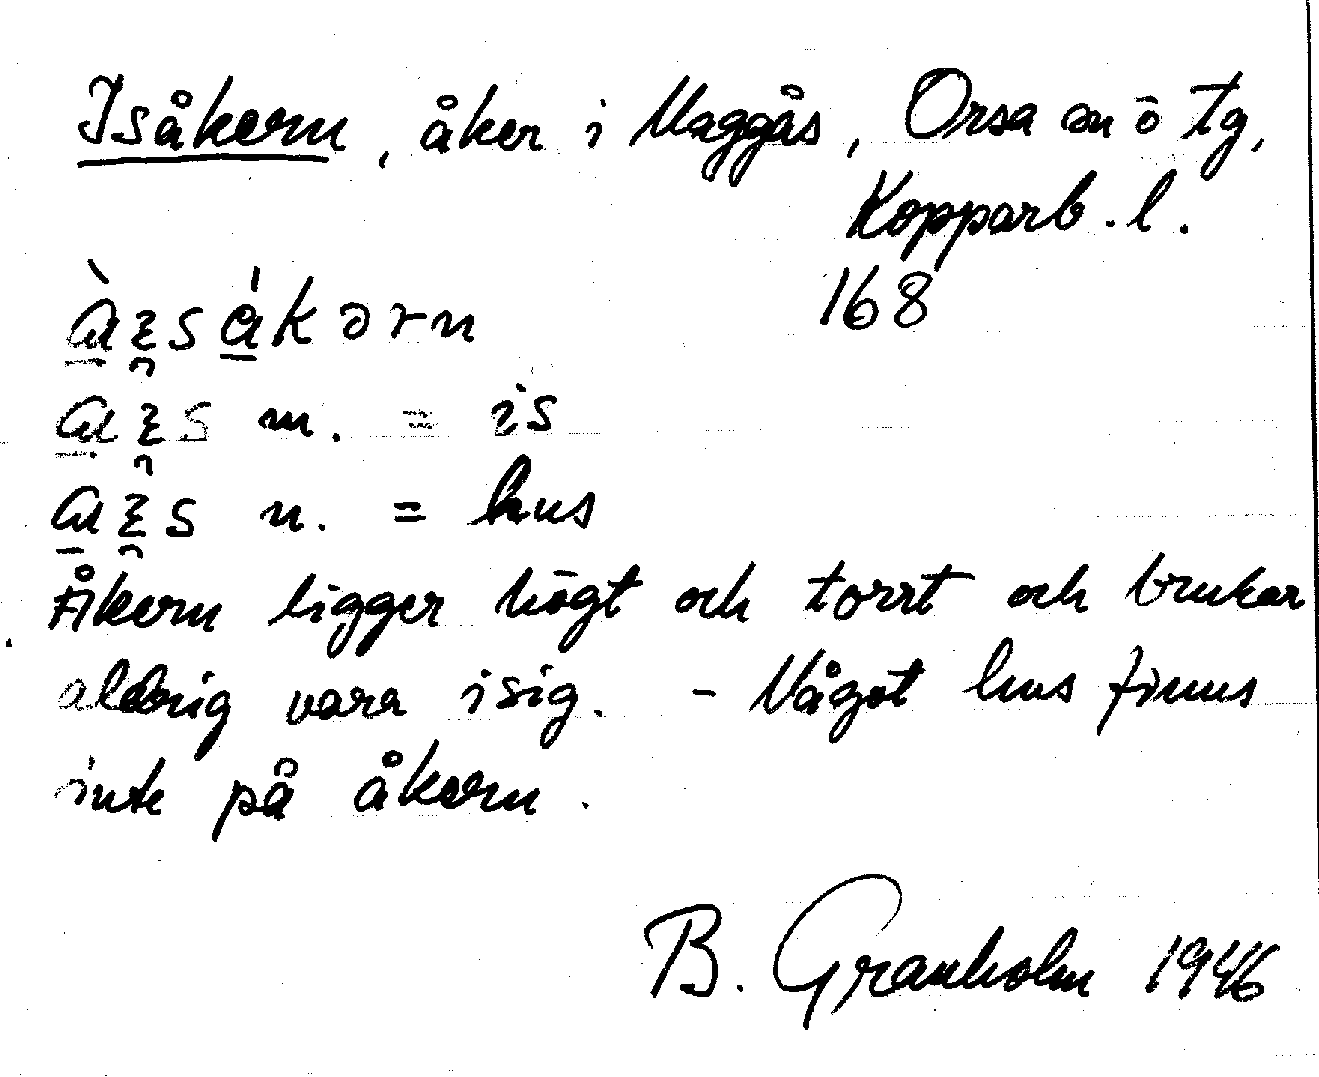 Isåkern, åker i Maggås, Orsa sn ö tg,
Kopparb. l.
168
m. = is
n. = hus
Åkern ligger högt och torrt och brukar
aldrig vara isig. – Något hus finns
inte på åkern.
B. Granholm 1946